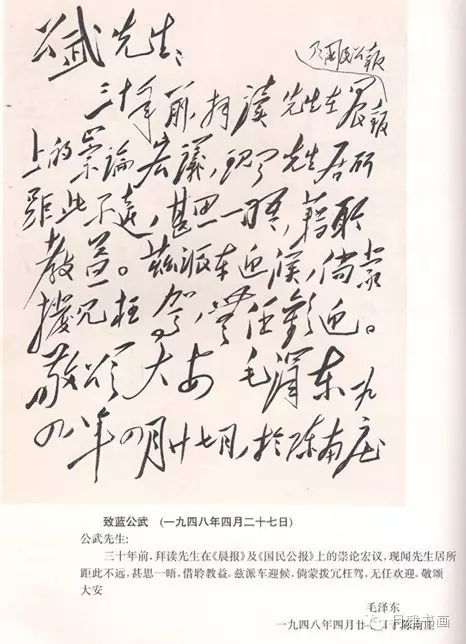 公武先生：
及國民公報
三十年前，拜读先生在晨報
上的崇論宏議，现闻先生居所
距此不遠，甚思一晤，藉聆
教益。兹派车迎候，倘蒙
拨冗枉驾，無任歡迎。
敬颂大安 毛澤东 一九
四八年四月廿七日，於陈南庄
致蓝公武 (一九四八年四月二十七日)
公武先生:
三十年前，拜读先生在《晨报》及《国民公报》上的崇论宏议，现闻先生居所
距此不远，甚思一晤，借聆教益。兹派车迎候，倘蒙拨冗枉驾，无任欢迎。敬颂
大安
毛泽东
一九四八年四月廿 于陈南庄
雅书画